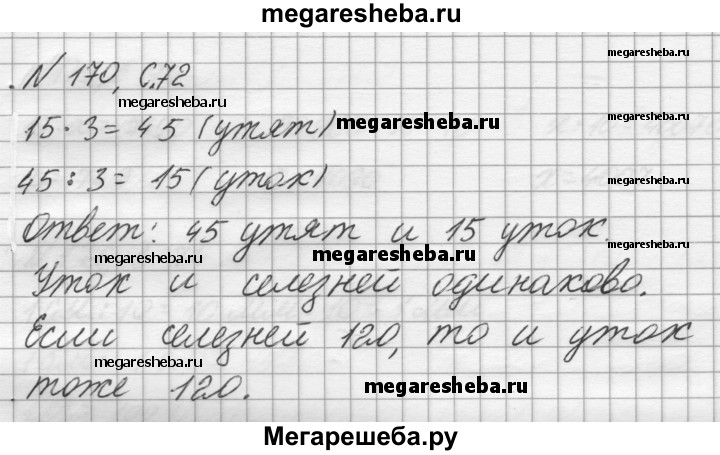 megaresheba.ru
№ 170, С.72
megaresheba.ru
megaresheba.ru
15 · 3 = 45 (утят)
megaresheba.ru
45 : 3 = 15 (уток)
Ответ: 45 утят и 15 уток.
megaresheba.ru
megaresheba.ru
Уток и селезней одинаково.
Если селезней 120, то и уток
megaresheba.ru
тоже 120.
megaresheba.ru
Мегарешеба.ру